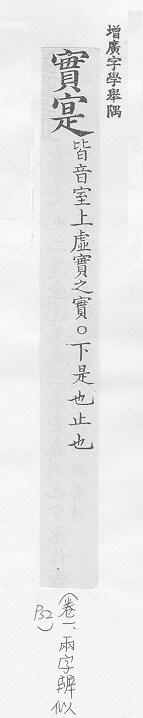 增廣字學舉隅
實寔皆音室上虛實之實○下是也止也
(卷一、兩字辨似
P52)